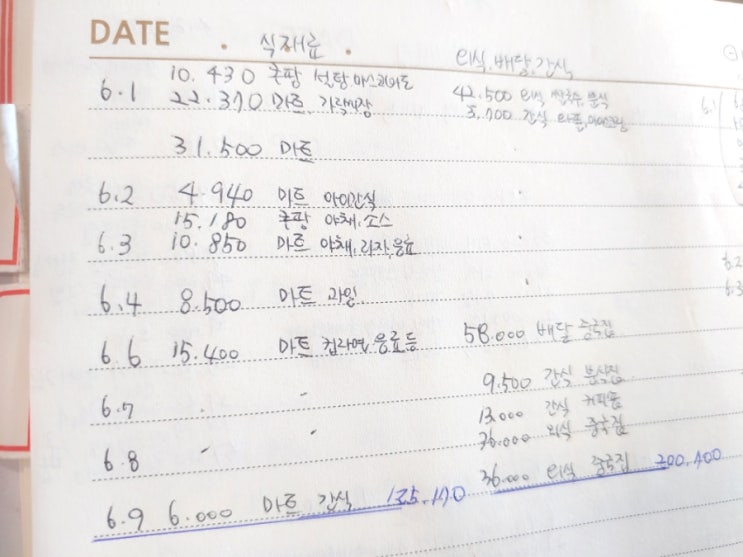 DATE . 식재료 . 외식, 배달, 간식
6.1 10.430 쿠팡 설탕
22.370 마트, 42.500 외식 쌀국수, 분식
5,700 간식 와플, 아이스크림
31.500 마트
6.2 4.940 마트 아이간식
15.180 쿠팡 야채, 소스
6.3 10.850 마트 야채, 과자, 음료
6.4 8.500 마트 과일
6.6 15.400 마트 컵라면, 음료 등 58.000 배달 중국집
9.500 간식 분식집
6.7 13.000 간식 커피숍
36.000 외식 중국집
6.8
36.000 외식 중국집 200,700
6.9 6.000 마트 간식 125.170